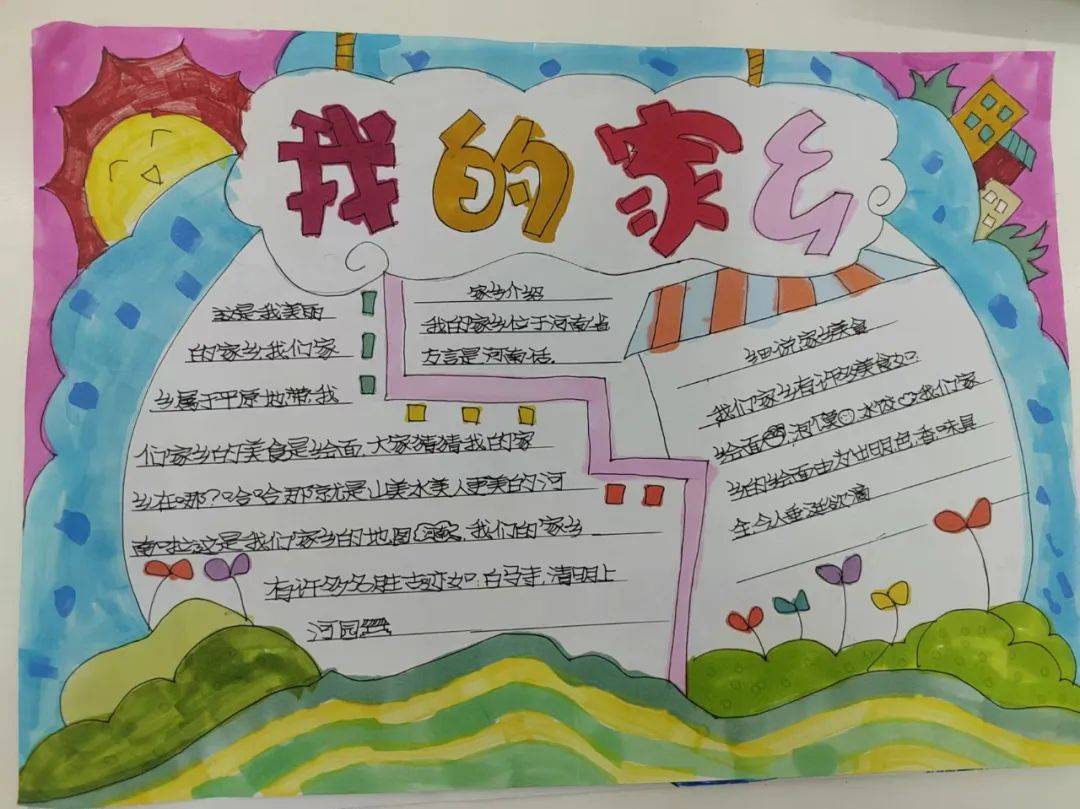 我的家乡
这是我美丽
的家乡我们家
乡属于平原地带,我
们家乡的美食是烩面,大家猜猜我的家
乡在哪?哈哈那就是山美水美人更美的河
南啦这是我们家乡的地图 河南,我们的家乡
有许多名胜古迹如,白马寺,清明上
河园
家乡介绍
我的家乡位于河南省
方言是河南话.
细说家乡美食
我们家乡有许多美食如.
烩面,泡馍,水饺 我们家
乡的烩面尤为出明,色,香,味具
全,令人垂涎欲滴